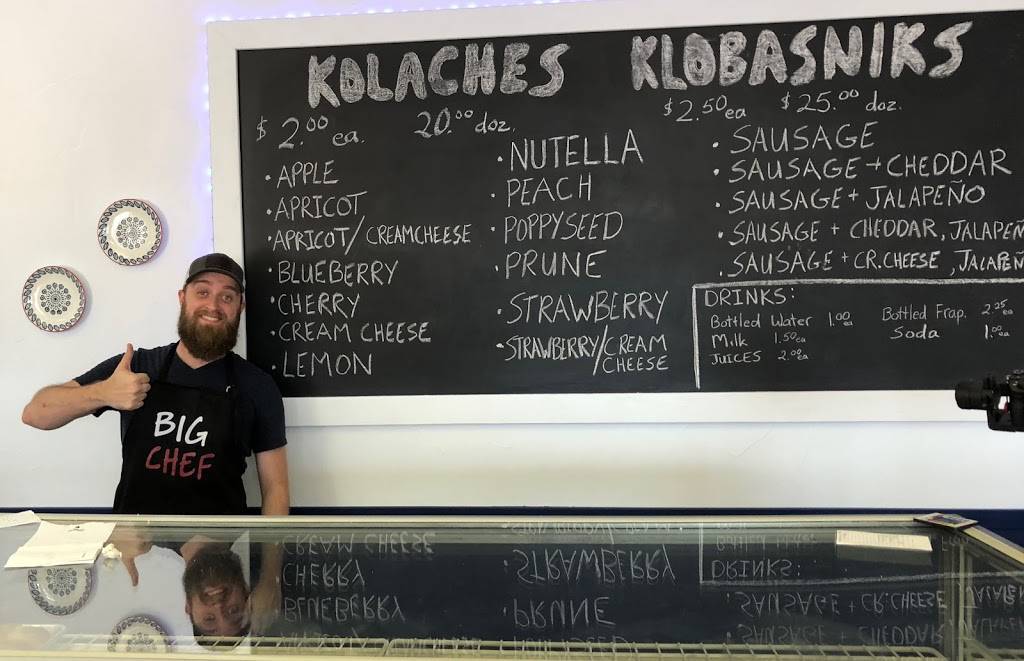 KOLACHES
$2.00 ea. 20.00 doz.
• APPLE
• APRICOT
• APRICOT/CREAMCHEESE
• BLUEBERRY
• CHERRY
• CREAM CHEESE
• LEMON
• NUTELLA
• PEACH
• POPPYSEED
• PRUNE
• STRAWBERRY
• STRAWBERRY/CREAM
CHEESE
KLOBASNIKS
$2.50 ea $25.00 doz.
• SAUSAGE
• SAUSAGE + CHEDDAR
• SAUSAGE + JALAPEÑO
• SAUSAGE + CHEDDAR, JALAPEÑ
• SAUSAGE + CR.CHEESE, JALAPEÑ
DRINKS:
Bottled Water 1.00 ea
Milk 1.50 ea
JUICES 2.00 ea
Bottled Frap. 2.25 ea
Soda 1.00 ea
BIG
CHEF